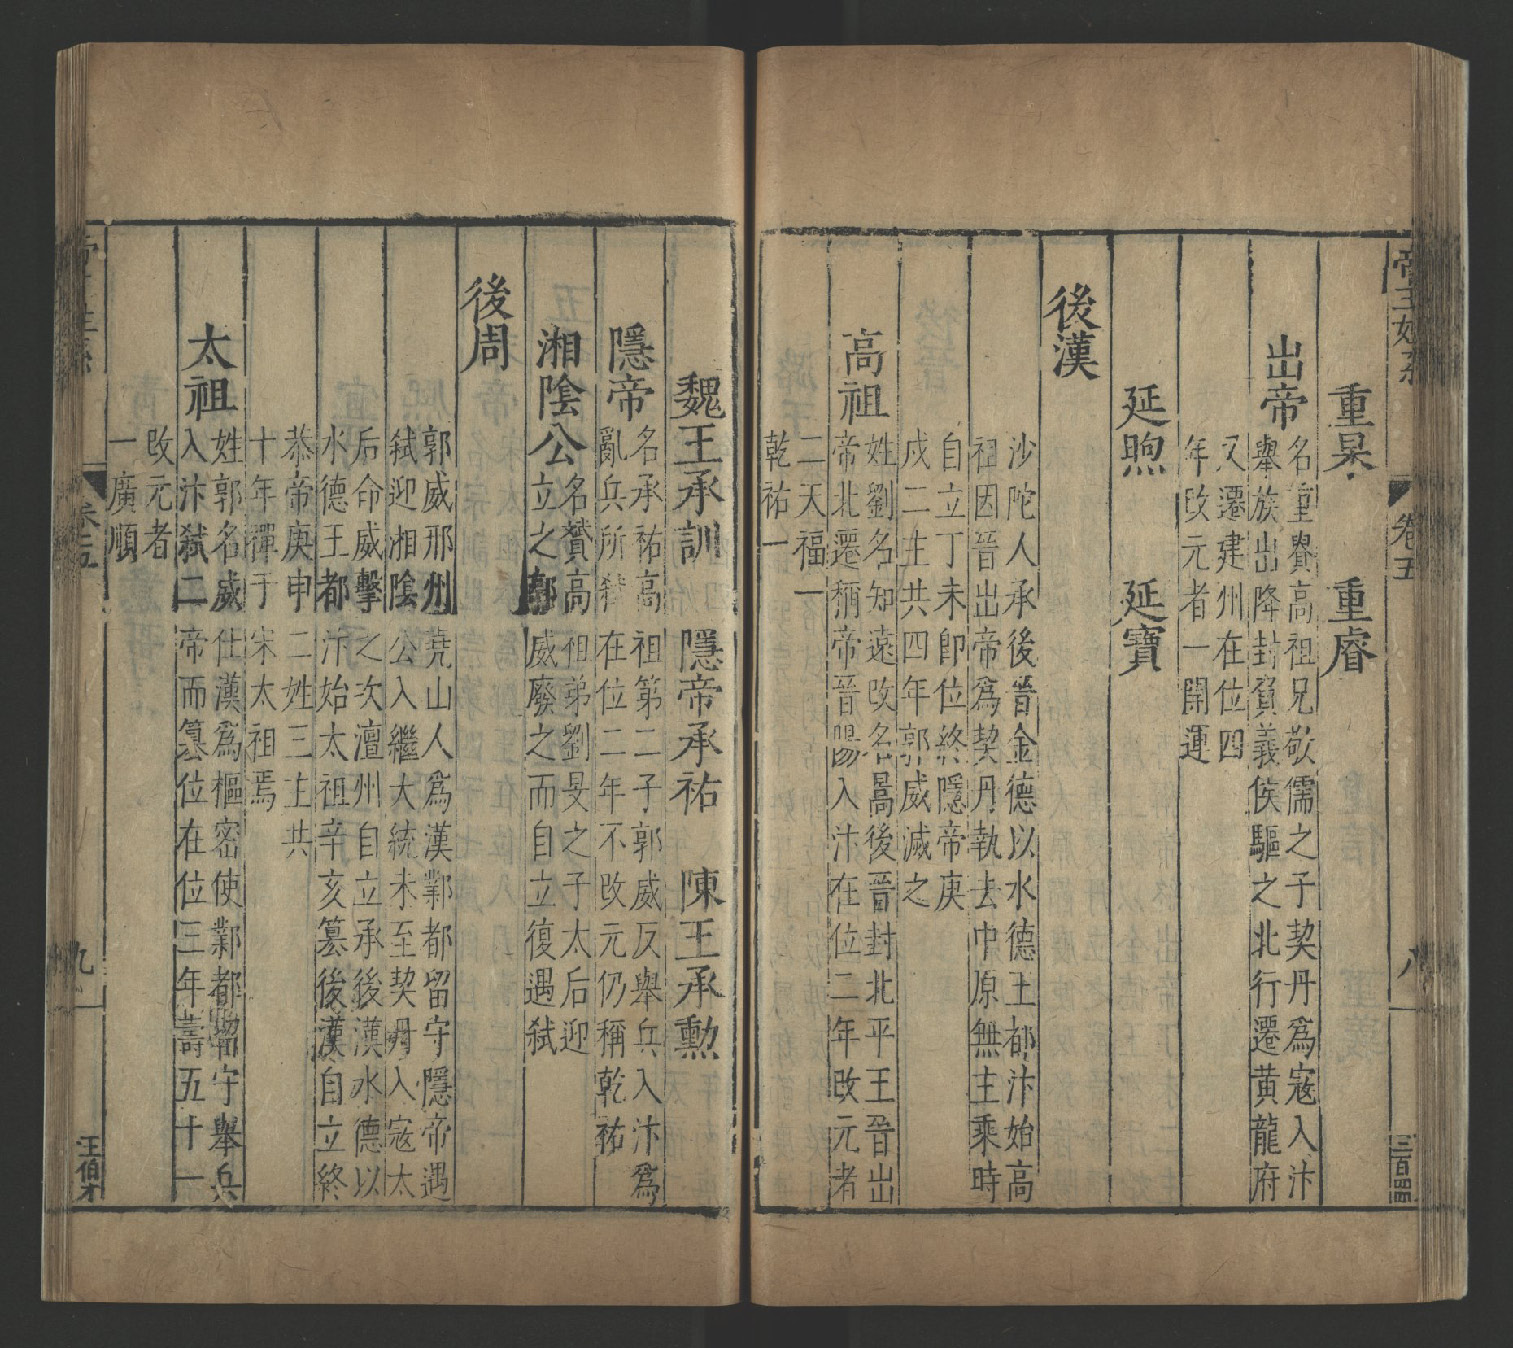 帝王姓系 卷五 八 三百四四
重杲 重睿
出帝
名重貴高祖兄敬儒之子契丹爲寇入汴
舉族出降封負義侯驅之北行遷黄龍府
又遷建州在位四
年改元者一開運
延煦 延寶
後漢
沙陀人承後晉金德以水德王都汴始高
祖因晉出帝爲契丹執去中原無主乘時
自立丁未卽位終隱帝庚
戌二主共四年郭威滅之
高祖
姓劉名知遠改名暠後晉封北平王晉出
帝北遷稱帝晉陽入汴在位二年改元者
二天福一
乾祐一
魏王承訓 隱帝承祐 陳王承勲
隱帝
名承祐高祖第二子郭威反舉兵入汴爲
亂兵所弒在位二年不改元仍稱乾祐
湘陰公
名贇高祖弟劉旻之子太后迎
立之郭威廢之而自立復遇弒
後周
郭威邢州堯山人爲漢鄴都留守隱帝遇
弒迎湘陰公入繼大統未至契丹入寇太
后命威擊之次澶州自立承後漢水德以
水德王都汴始太祖辛亥簒後漢自立終
恭帝庚申二姓三主共
十年禪于宋太祖焉
太祖
姓郭名威仕漢爲樞密使鄴都留守舉兵
入汴弒二帝而簒位在位三年壽五十一
改元者
一廣順
卷五 九 王伯才